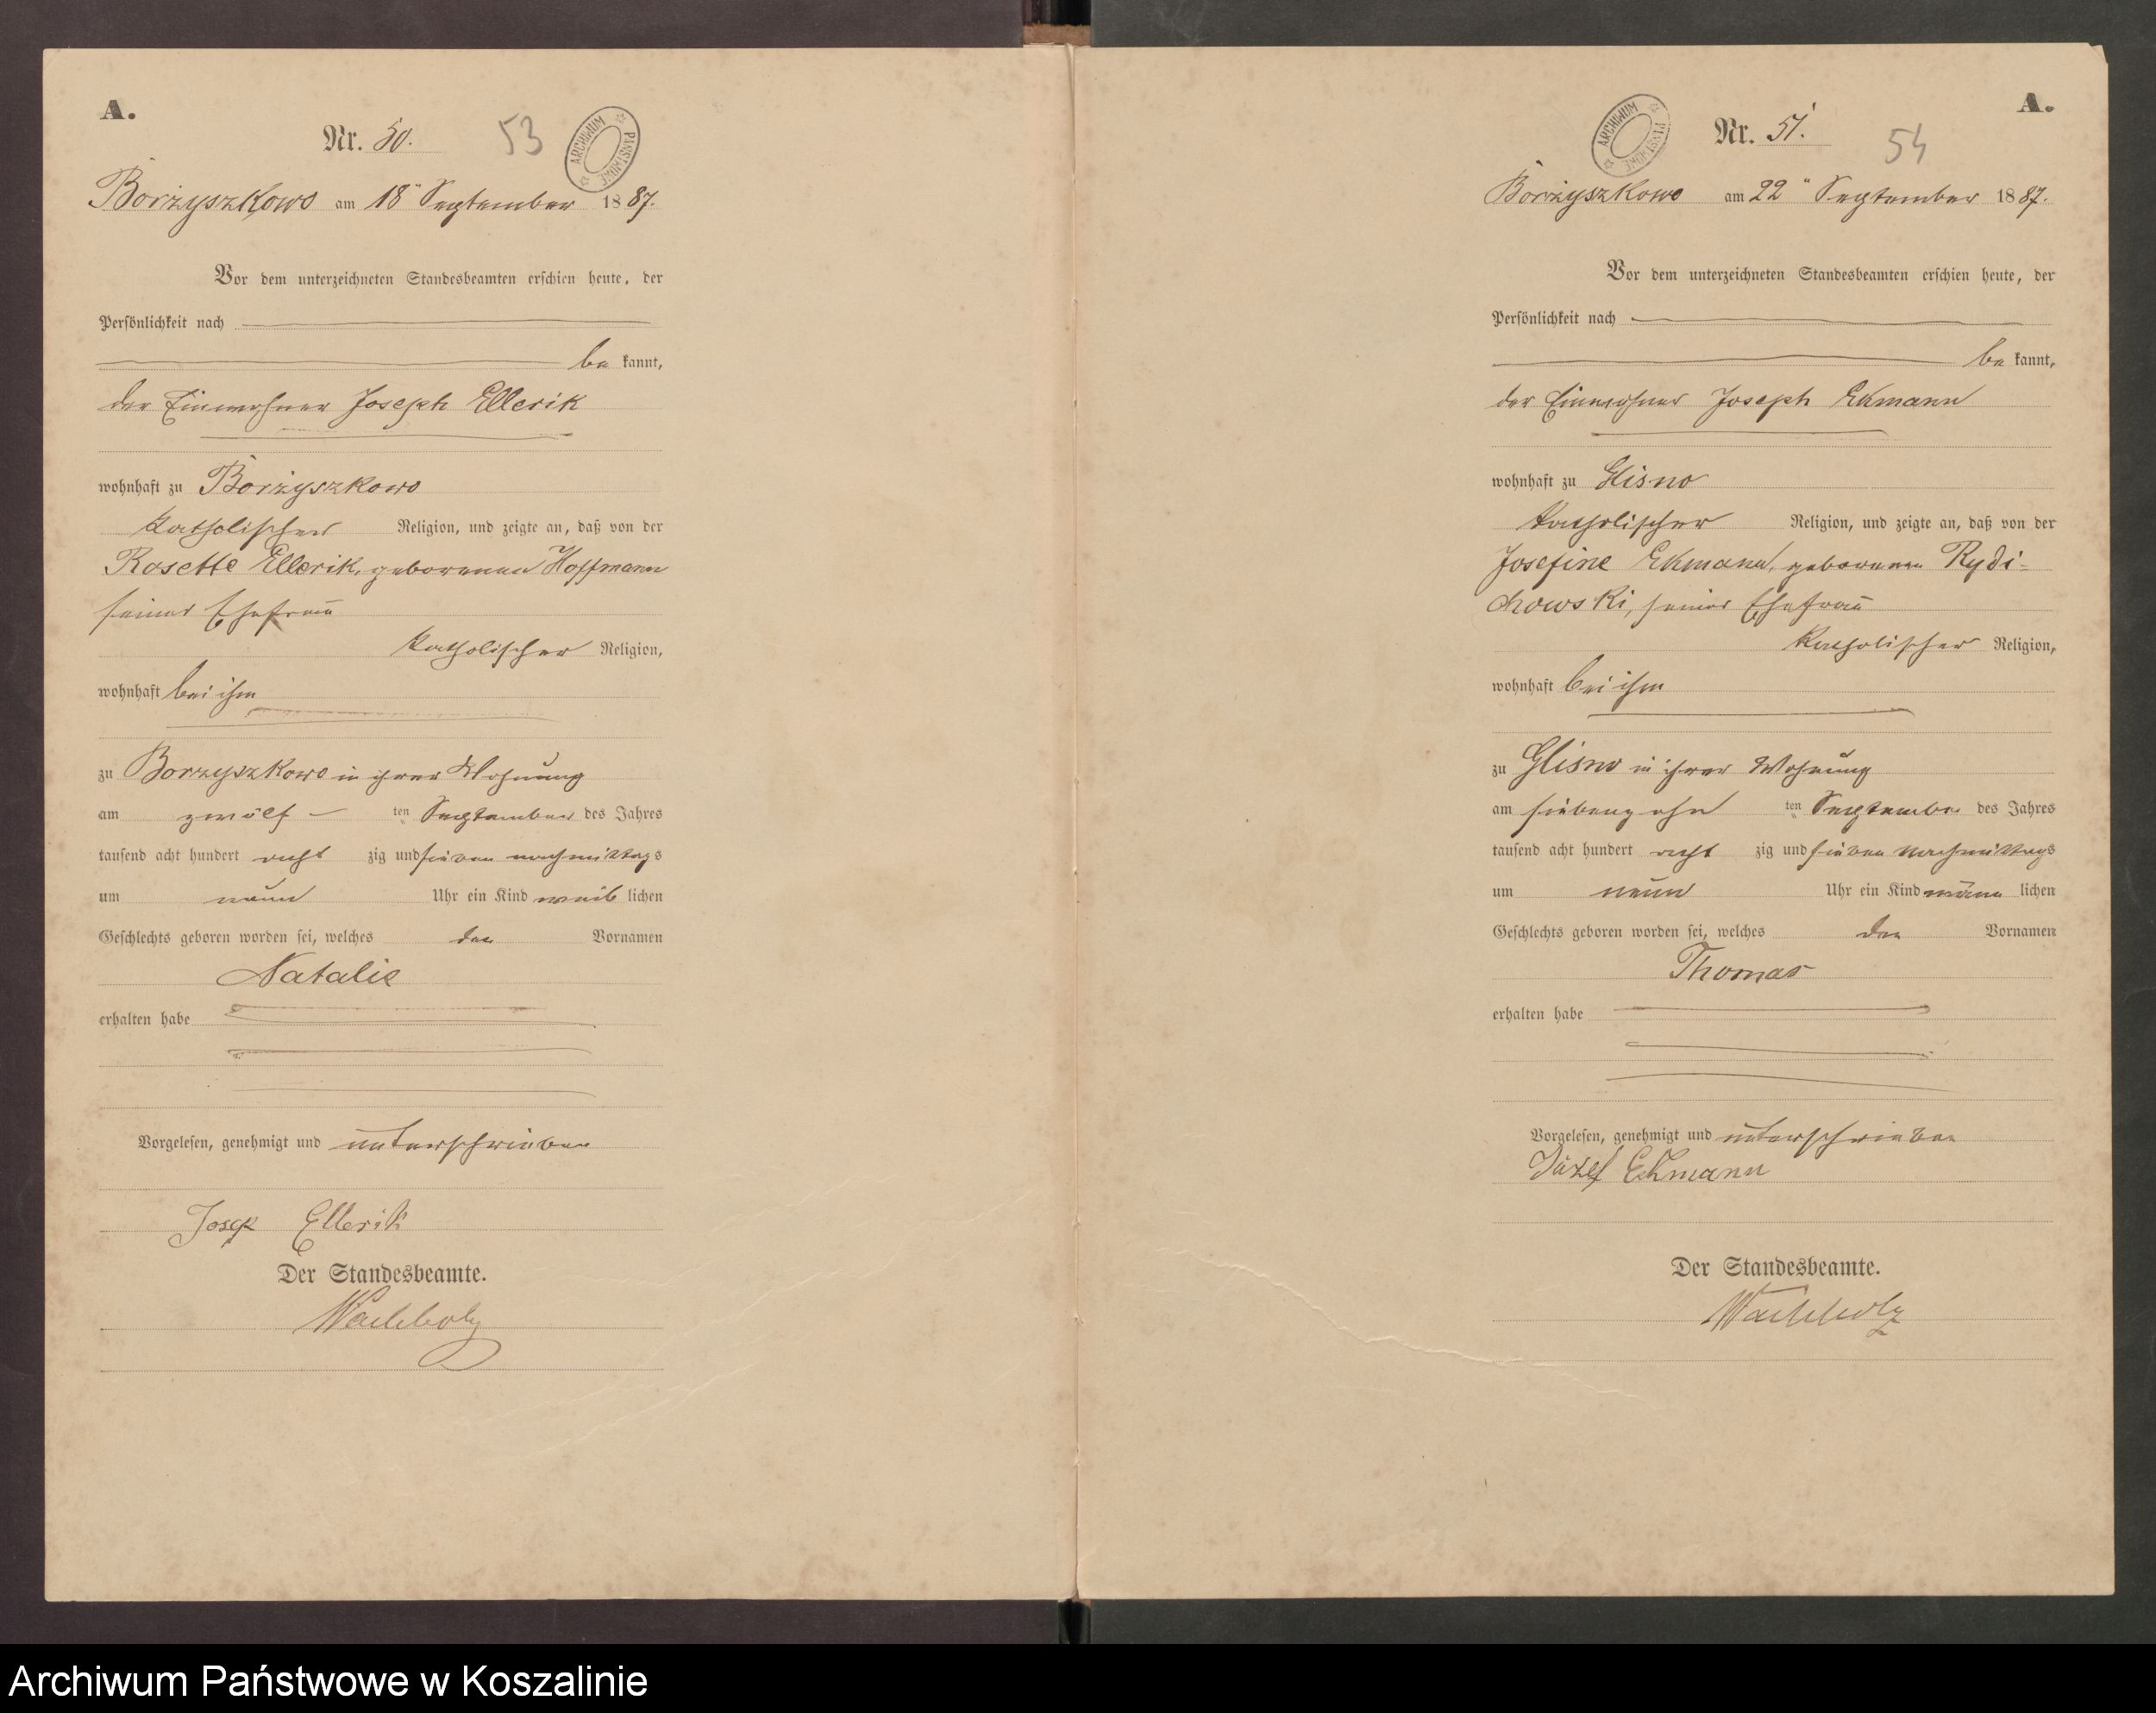 A.
Nr. 50.
53
ARCHIWUM PAŃSTWOWE
Borzyszkowo am 18" September 1887.
Vor dem unterzeichneten Standesbeamten erschien heute, der
Persönlichkeit nach
be kannt,
der Einwohner Joseph Ellerik
wohnhaft zu Borzyszkowo
katholischer Religion, und zeigte an, daß von der
Rosette Ellerik, geborenen Hoffmann
seiner Ehefrau
katholischer Religion,
wohnhaft bei ihm
zu Borzyszkowo in ihrer Wohnung
am zwölf ten September des Jahres
tausend acht hundert acht zig und sieben nachmittags
um neun Uhr ein Kind weib lichen
Geschlechts geboren worden sei, welches den Vornamen
Natalie
erhalten habe
Vorgelesen, genehmigt und unterschrieben
Josep Ellerik
Der Standesbeamte.
Wachholz
A.
ARCHIWUM PAŃSTWOWE
Nr. 51.
54
Borzyszkowo am 22" September 1887.
Vor dem unterzeichneten Standesbeamten erschien heute, der
Persönlichkeit nach
be kannt,
der Einwohner Joseph Ekmann
wohnhaft zu Glisno
katholischer Religion, und zeigte an, daß von der
Josefine Ekmann, geborenen Rydi-
chowski, seiner Ehefrau
katholischer Religion,
wohnhaft bei ihm
zu Glisno in ihrer Wohnung
am siebenzehn ten September des Jahres
tausend acht hundert acht zig und sieben nachmittags
um neun Uhr ein Kind männ lichen
Geschlechts geboren worden sei, welches den Vornamen
Thomas
erhalten habe
Vorgelesen, genehmigt und unterschrieben
Józef Ekmann
Der Standesbeamte.
Wachholz
Archiwum Państwowe w Koszalinie